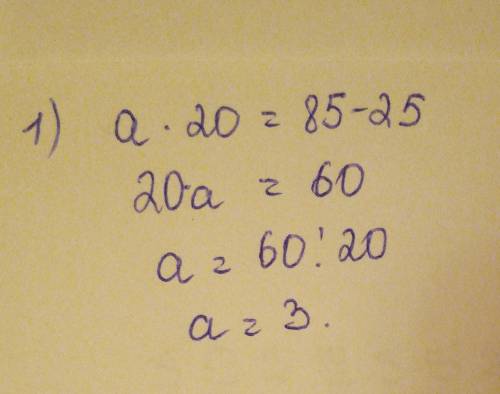 1) a · 20 = 85-25
20·a = 60
a = 60 : 20
a = 3.